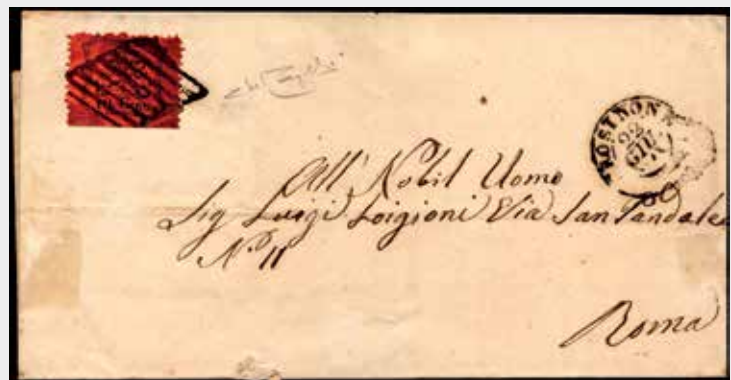 FROSINONE
22
GIU
All' Nobil Uomo
Sig Luigi Loigioni Via San Pandaleo
N° 11
Roma